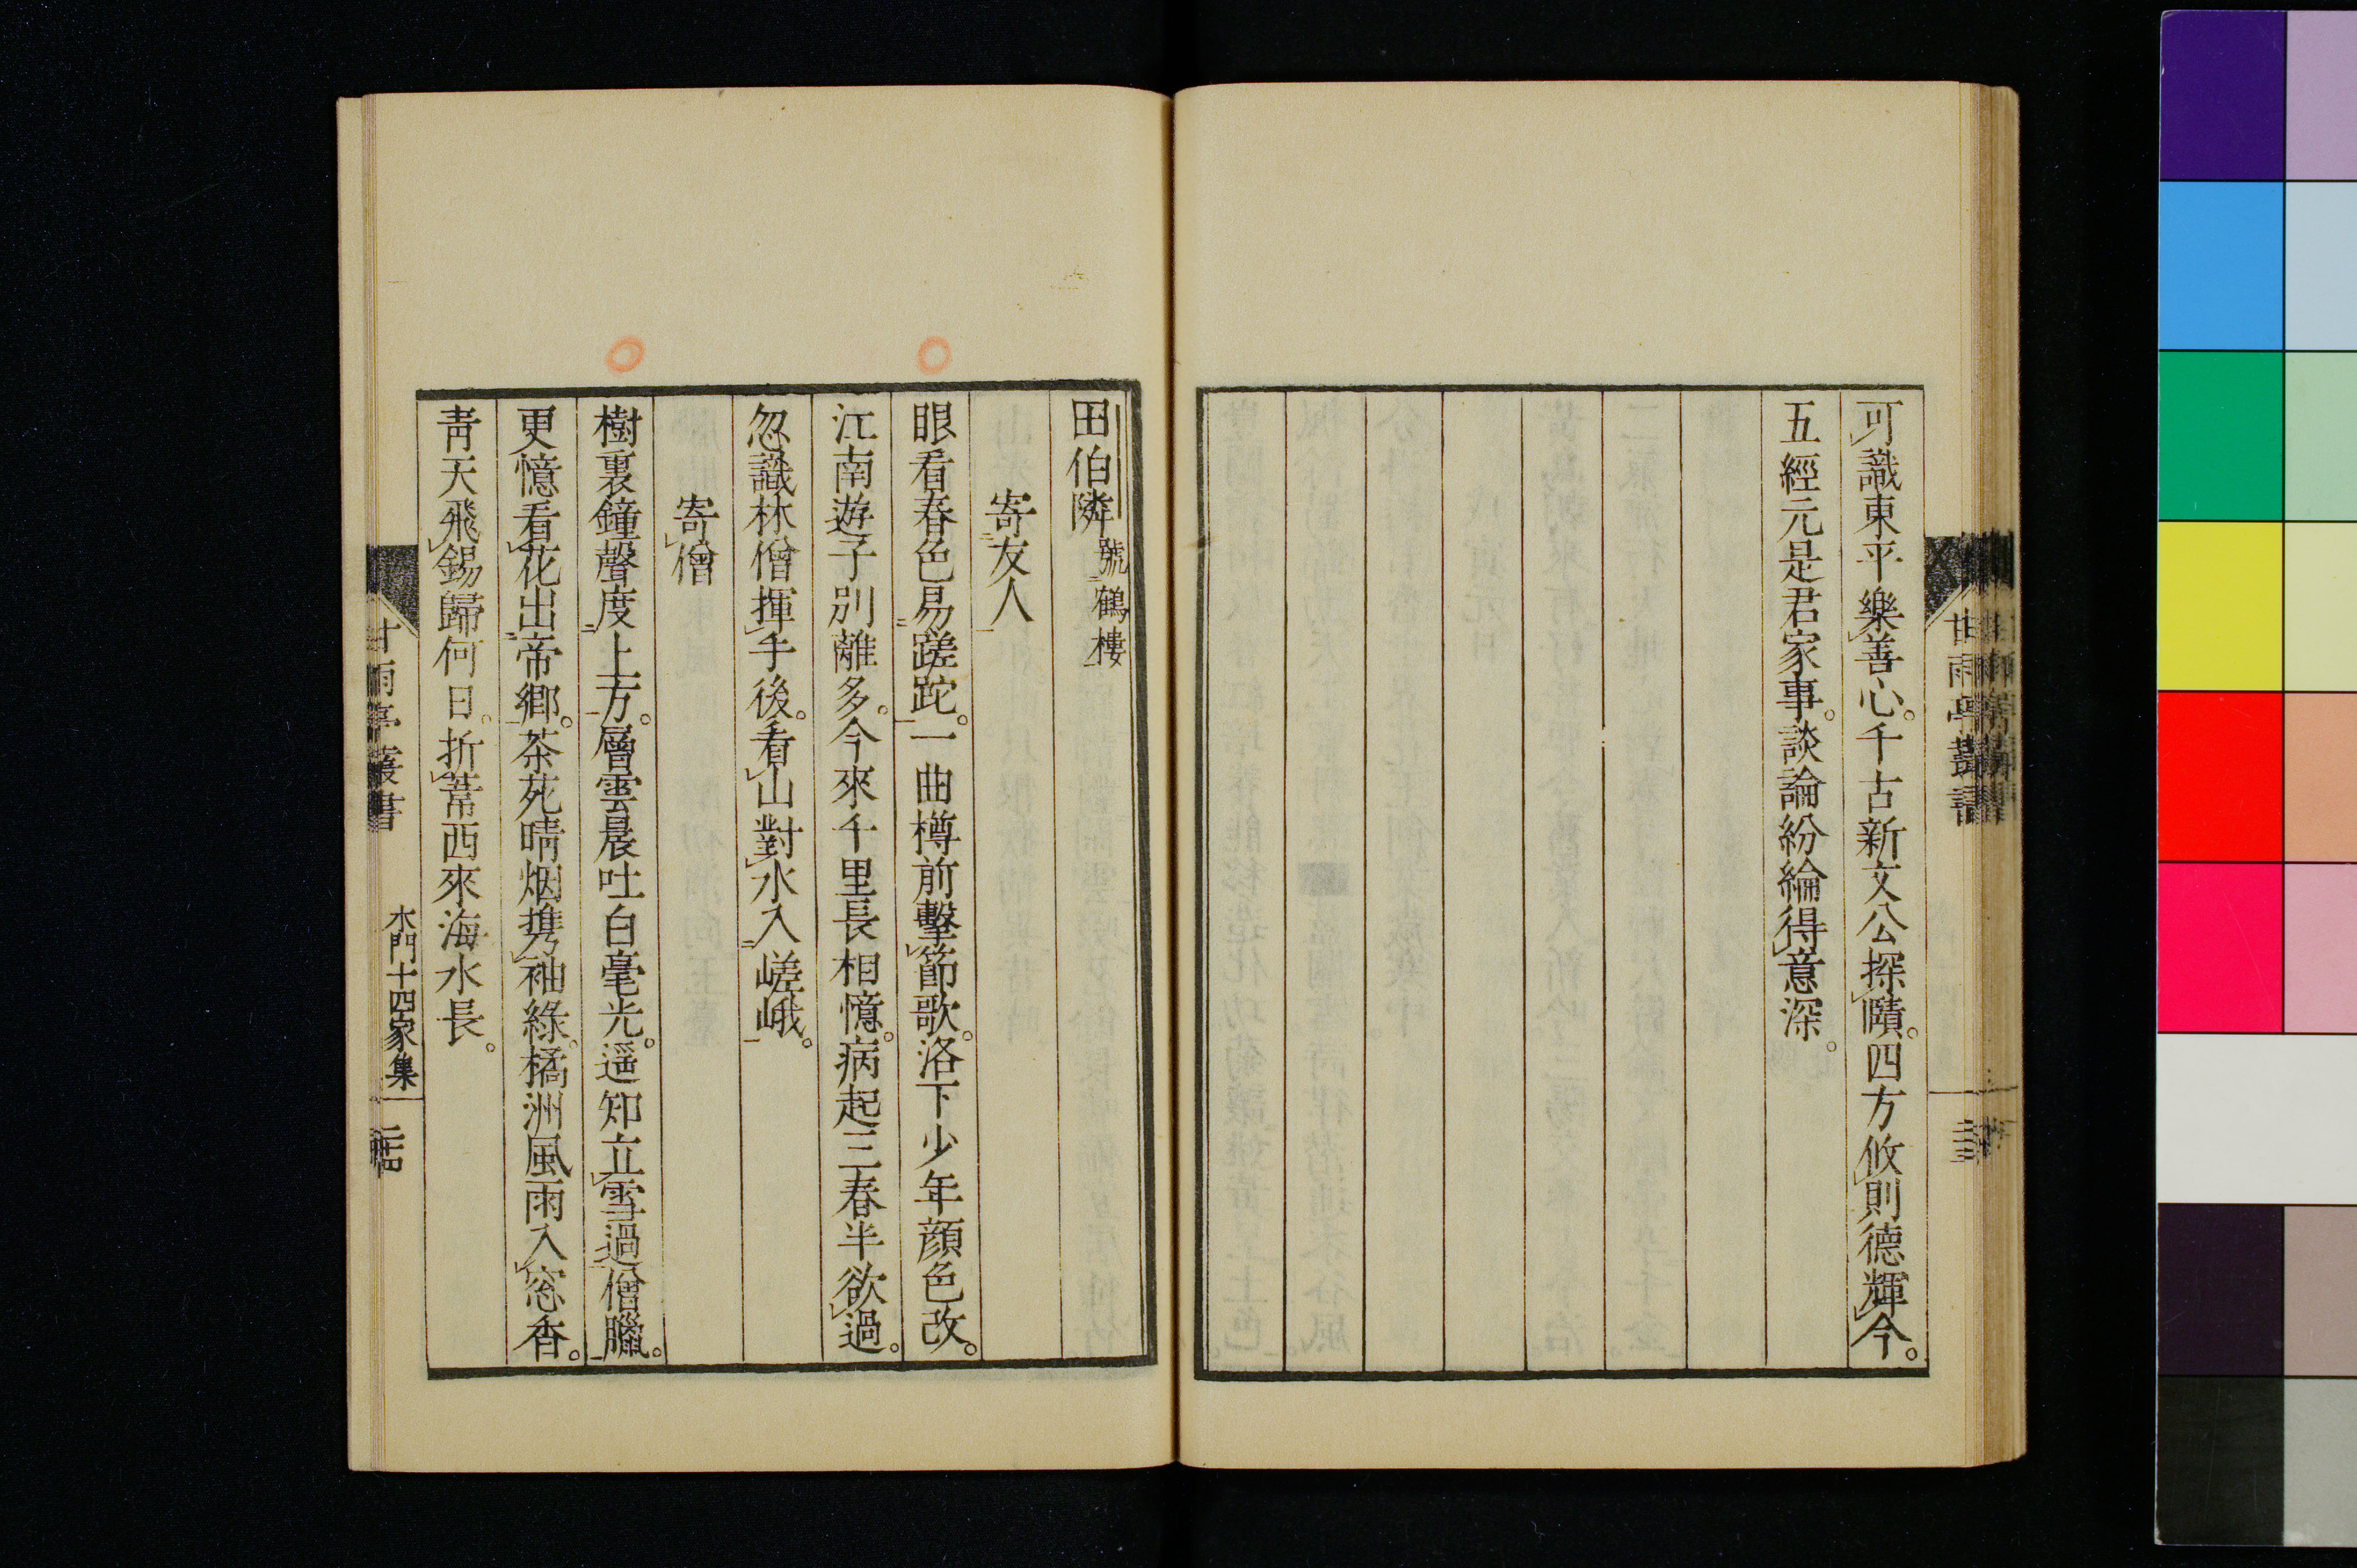 可識東平樂善心。千古新文公探賾。四方攸則德輝今。
五經元是君家事。談論紛綸得意深。
甘雨亭叢書
田伯隣 號鶴樓
寄友人
眼看春色易蹉跎。一曲樽前擊節歌。洛下少年顔色改。
江南遊子別離多。今來千里長相憶。病起三春半欲過。
忽識林僧揮手後。看山對水入嵯峨。
寄僧
樹裏鐘聲度上方。層雲晨吐白毫光。遥知立雪過僧臘。
更憶看花出帝鄉。茶苑晴烟携袖綠。橘洲風雨入窓香。
靑天飛錫歸何日。折葦西來海水長。
甘雨亭叢書
木門十四家集